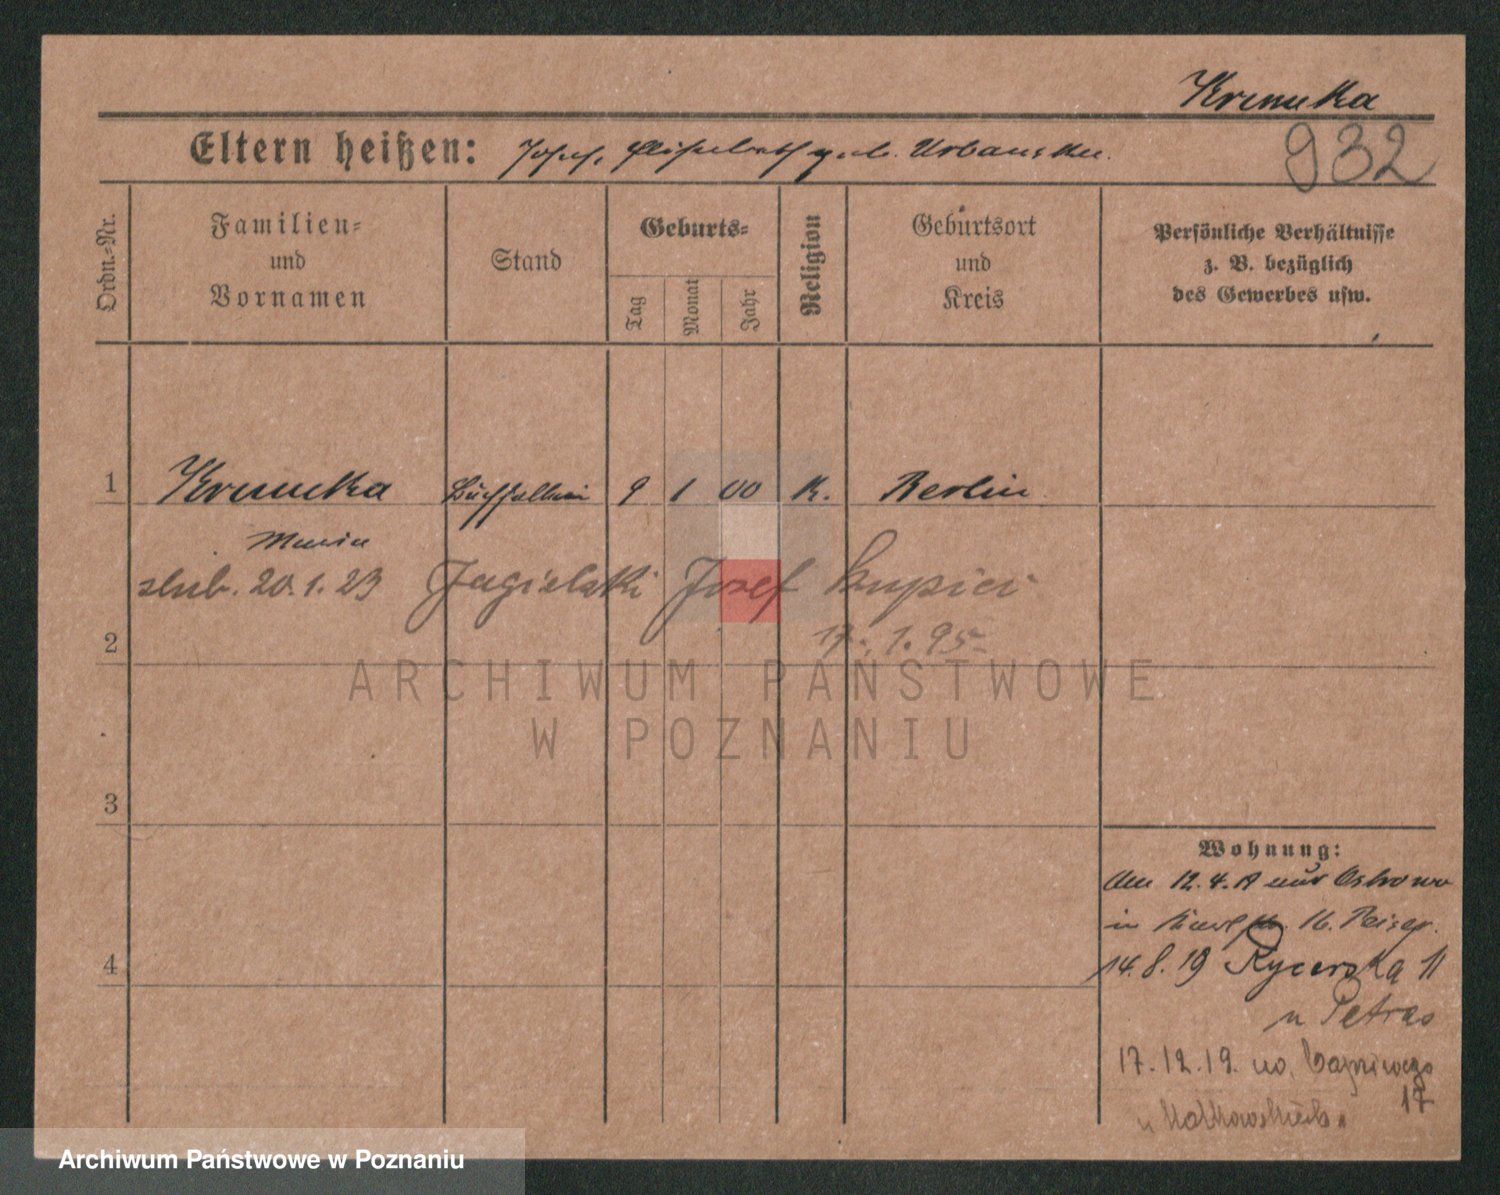 Krumuka
932
Eltern heißen: Josef, Elisabeth geb. Urbanska.
Ordn.-Nr.
Familien-
und
Vornamen
Stand
Geburts-
Tag
Monat
Jahr
Religion
Geburtsort
und
Kreis
Persönliche Verhältnisse
z. B. bezüglich
des Gewerbes usw.
1 9 1 00 K. Berlin
Maria
ślub. 20.1.23 Jagielski Josef kupiec
17.1.95
2
ARCHIWUM PAŃSTWOWE
W POZNANIU
3
Wohnung:
Am 12.4.19 aus Ostrowo
in 16. Peiser.
4
14.8.19 Rycerska 11
u Petras
17.12.19. Capriwego
17
Archiwum Państwowe w Poznaniu